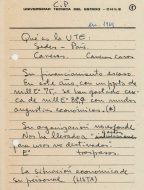 C.P.
UNIVERSIDAD TECNICA DEL ESTADO - CHILE
1969
Qué es la UTE:
Sedes - País.
Carreras. Carreras cortas
Su financiamiento escaso.
En este año, con un ppto de
mil Eº 75, se han gastado cer
ca de mil Eº 80,0 con muchos
angustias económicas (*)
Su organización
No ha llevado a
para usos no destinados.
Eº traspasos.
La situación económica de
su personal (LISTA)